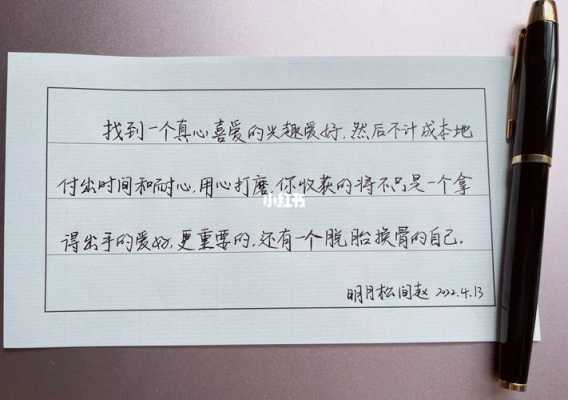 找到一个真心喜爱的兴趣爱好,然后不计成本地
付出时间和耐心,用心打磨,你收获的将不只是一个拿
小红书
得出手的爱好,更重要的,还有一个脱胎换骨的自己。
明月松间赵 2022.4.13